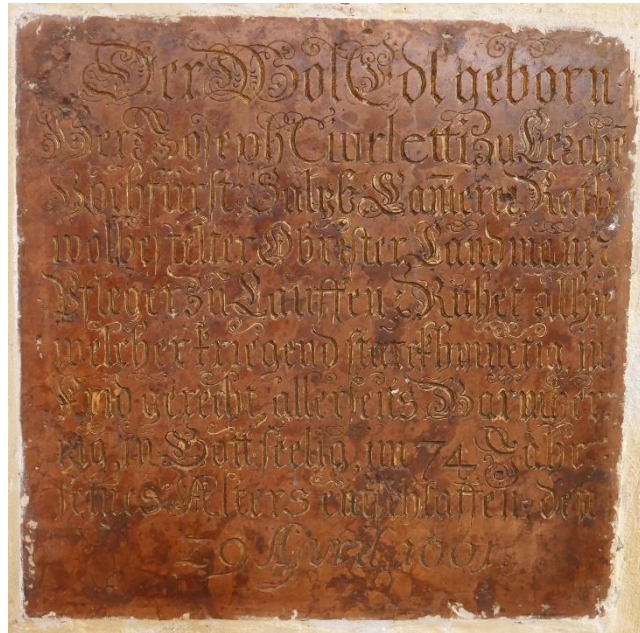 Der Wol Edl geborn
Her Joseph Ciurletti zu Lerche
Hochfürstl: Salzb: Cam̄er: Rath
wolbestelter Obrister Landmann
Pfleger zu Lauffen, Ruhet alhie
welcher kriegend starckhmüetig, in
Frid gerecht, allerseits Barmhertz
zig, in Gott seelig, im 74 Jahr
seines Alters entschlaffen, den
29 April